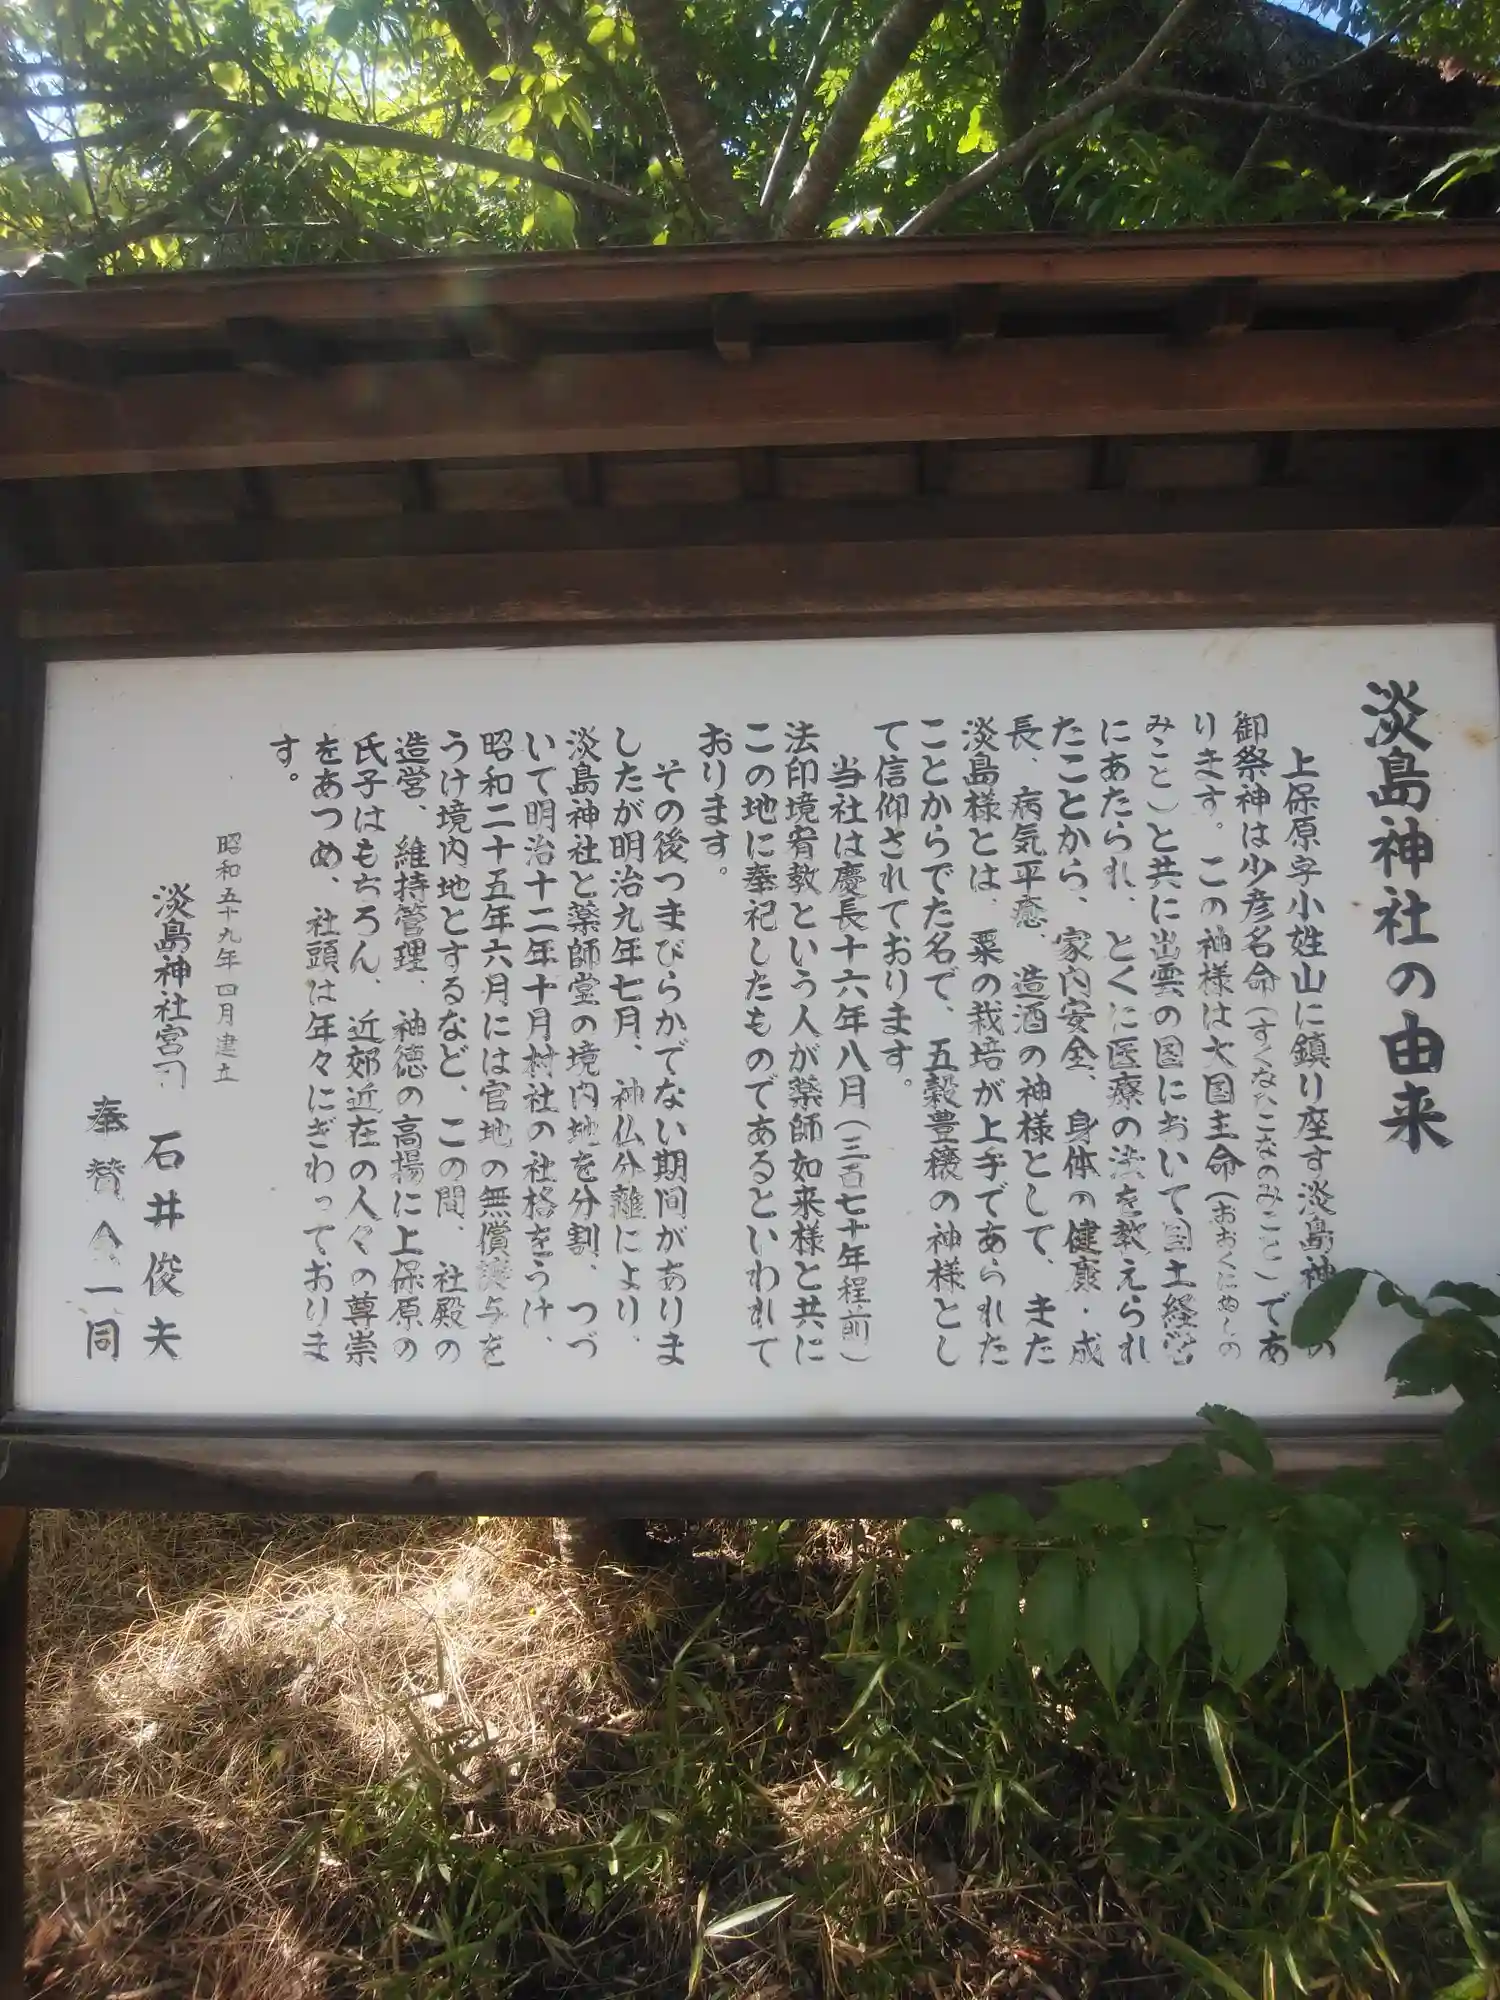 淡島神社の由来
上保原字小姓山に鎮り座す淡島神の
御祭神は少彦名命(すくなひこなのみこと)であ
ります。この神様は大国主命(おおくにぬしの
みこと)と共に出雲の国において国土経営
にあたられ、とくに医療の法を教えられ
たことから、家内安全、身体の健康・成
長、病気平癒、造酒の神様として、また
淡島様とは、粟の栽培が上手であられた
ことからでた名で、五穀豊穣の神様とし
て信仰されております。
当社は慶長十六年八月(三百七十年程前)
法印境宥教という人が薬師如来様と共に
この地に奉祀したものであるといわれて
おります。
その後つまびらかでない期間がありま
したが明治九年七月、神仏分離により、
淡島神社と薬師堂の境内地を分割、つづ
いて明治十二年十月村社の社格をうけ、
昭和二十五年六月には官地の無償譲与を
うけ境内地とするなど、この間、社殿の
造営、維持管理、神徳の高揚に上保原の
氏子はもちろん、近郊近在の人々の尊崇
をあつめ、社頭は年々にぎわっておりま
す。
昭和五十九年四月建立
淡島神社宮司 石井俊夫
奉賛会一同